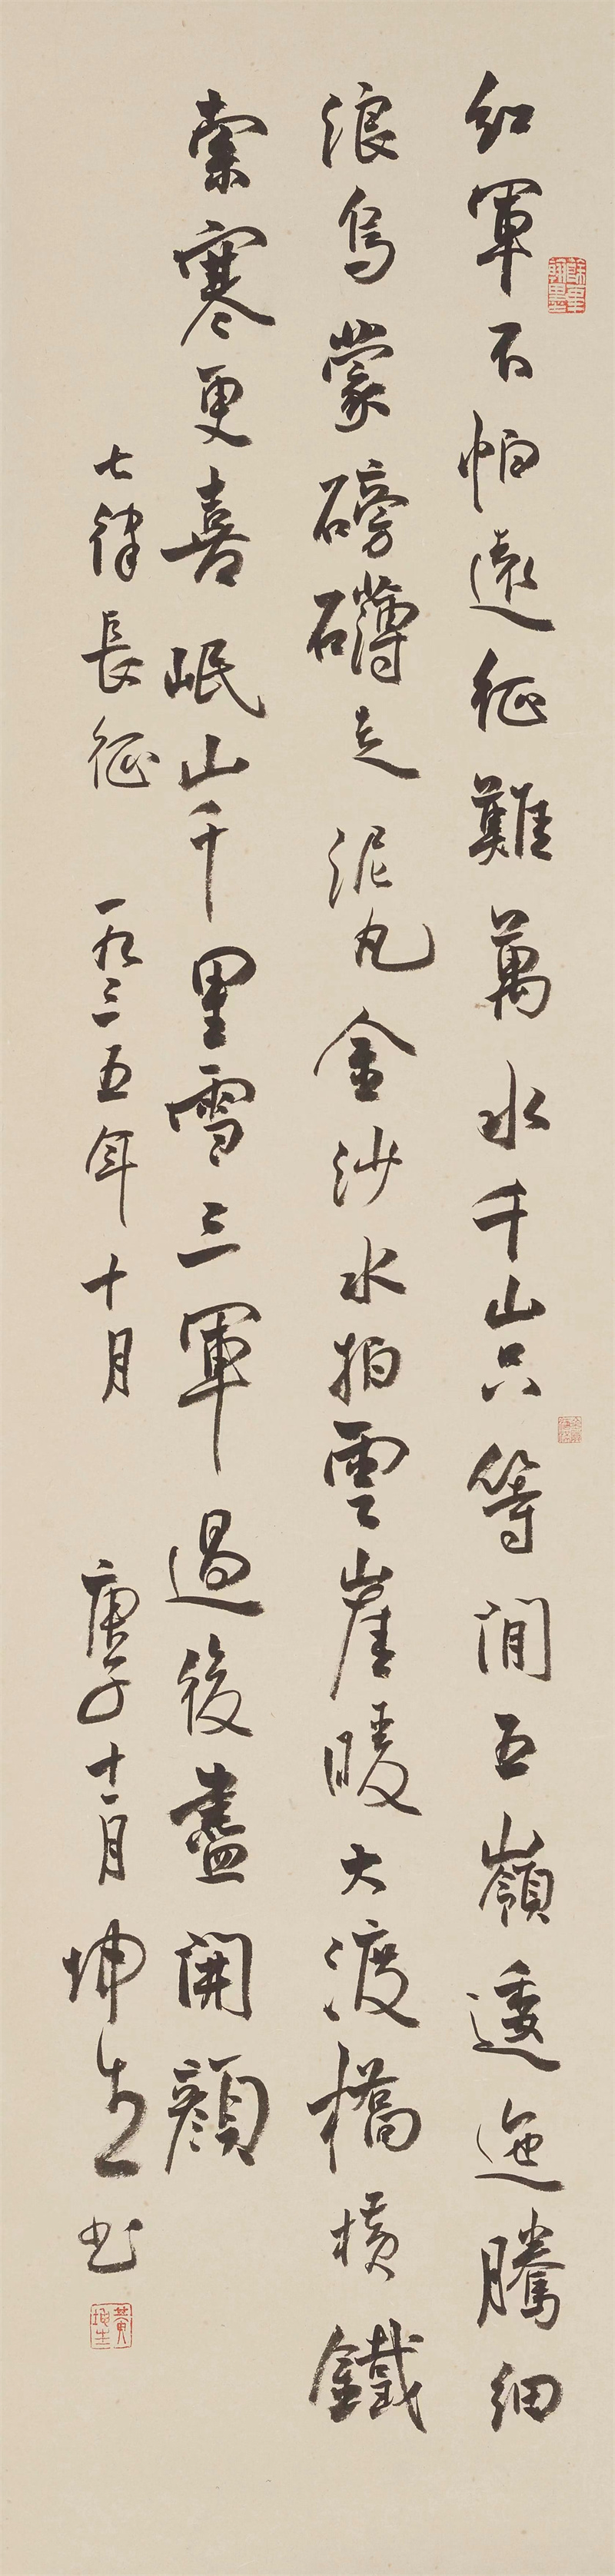 紅軍不怕遠征難萬水千山只等閒五嶺逶迤騰細
浪烏蒙磅礴走泥丸金沙水拍雲崖暖大渡橋橫鐵
索寒更喜岷山千里雪三軍過後盡開顏
七律長征 一九三五年十月 庚子十一月 坤生书